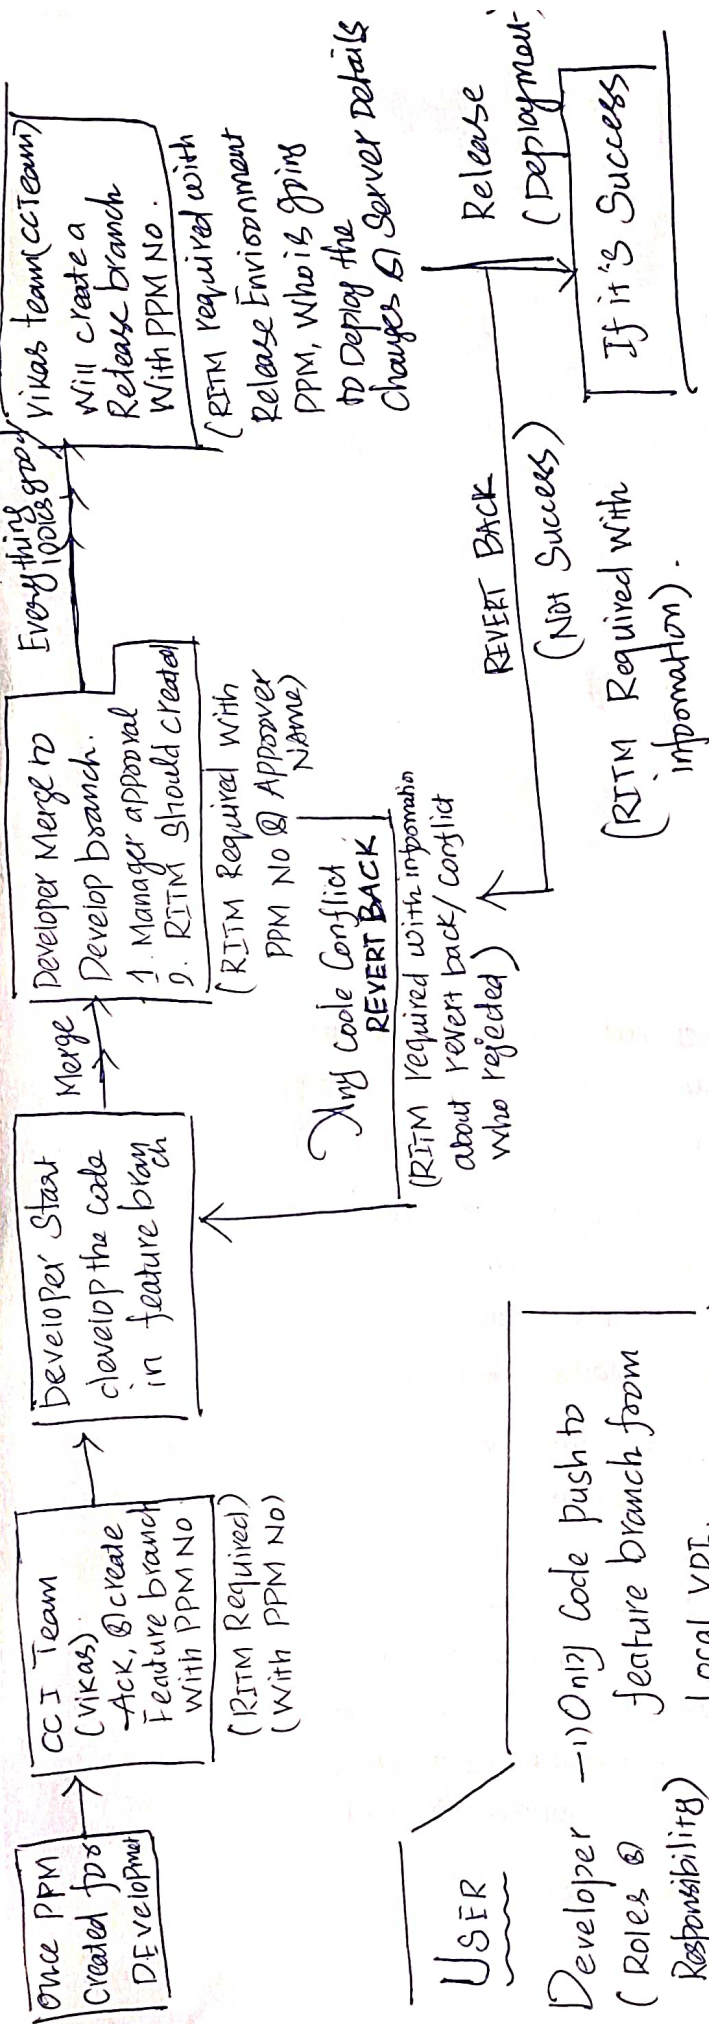 Once PPM
Created for
DEvelopmet
CCI Team
(Vikas).
Ack, & create
Feature branch
With PPM NO
(RITM Required)
(With PPM NO)
Developer Start
develop the code
in feature bran
ch
Merge
Developer Merge to
Develop branch.
1. Manager approval
2. RITM should created
(RITM Required With
PPM NO & Approver
NAME)
Any Code Conflict
REVERT BACK
(RITM required with information
about revert back/conflict
who rejected)
Everything
looks good
Vikas team(CCTeam)
Will create a
Release branch
With PPM NO.
(RITM required with
Release Environment
PPM, Who is going
to Deploy the
Changes & Server Details
Release
(Deployment.
If it's Success
REVERT BACK
(Not Success)
(RITM Required With
information).
USER
Developer
(Roles &
Responsibility)
1) Only Code push to
feature branch from
Local VDI.